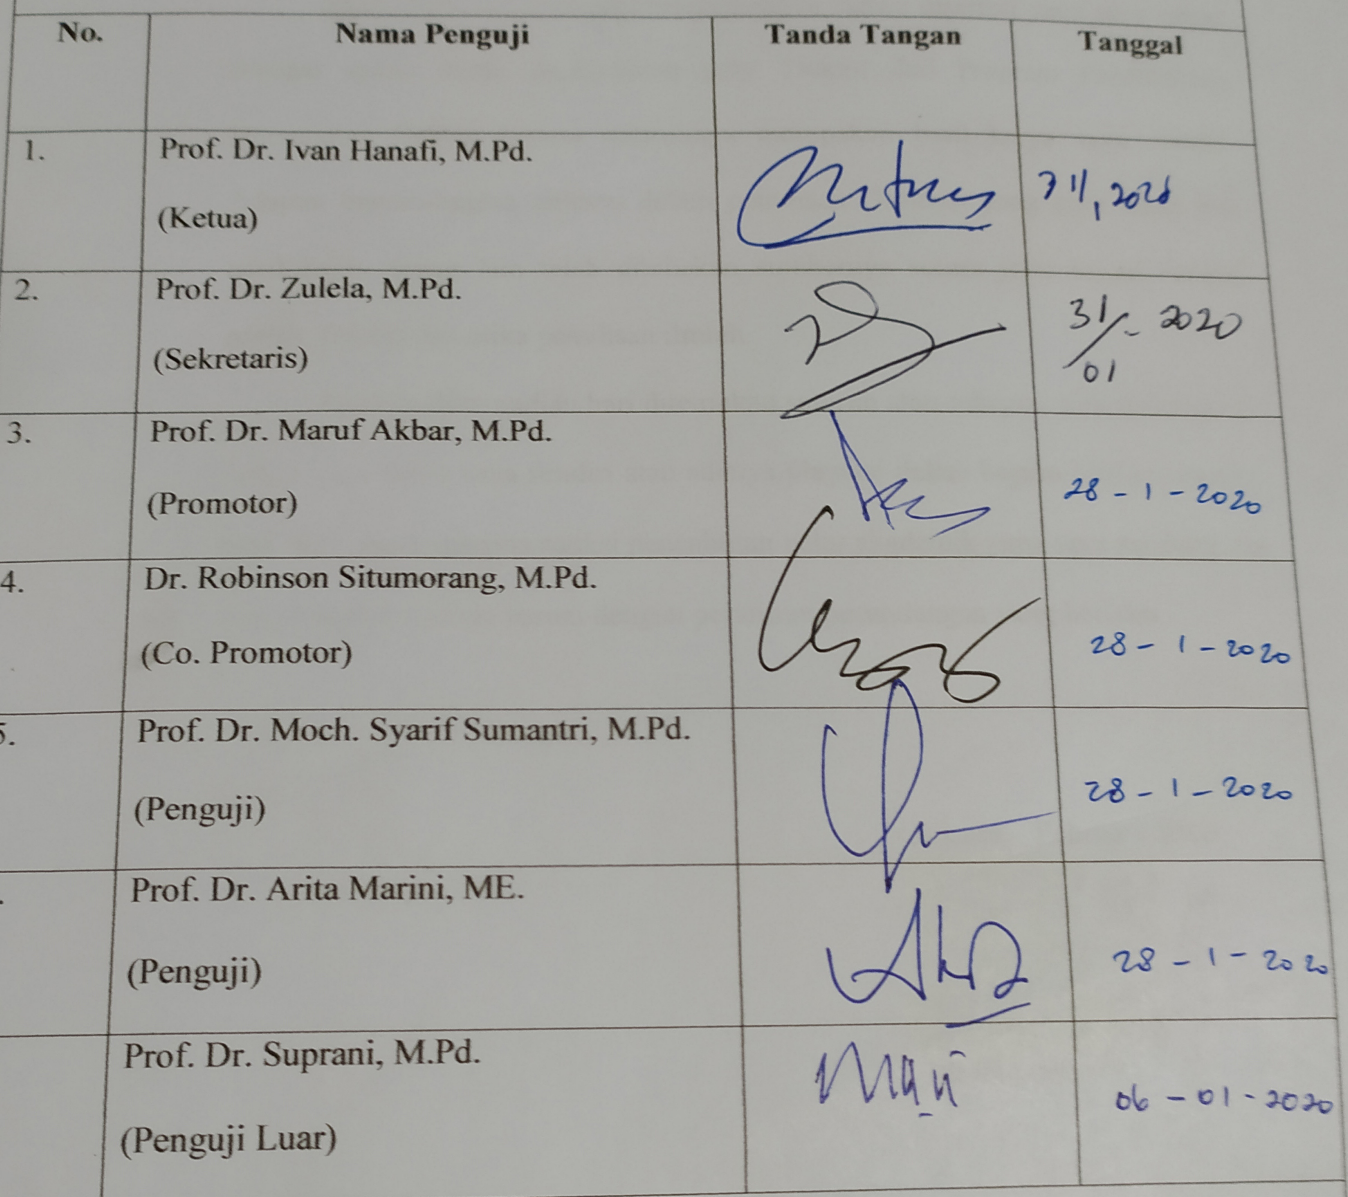 No. Nama Penguji Tanda Tangan Tanggal
1. Prof. Dr. Ivan Hanafi, M.Pd.
(Ketua)
2. Prof. Dr. Zulela, M.Pd. 31/01 - 2020
(Sekretaris)
3. Prof. Dr. Maruf Akbar, M.Pd.
(Promotor) 28 - 1 - 2020
4. Dr. Robinson Situmorang, M.Pd.
(Co. Promotor) 28 - 1 - 2020
5. Prof. Dr. Moch. Syarif Sumantri, M.Pd.
(Penguji) 28 - 1 - 2020
Prof. Dr. Arita Marini, ME.
(Penguji) 28 - 1 - 2020
Prof. Dr. Suprani, M.Pd.
(Penguji Luar) 06 - 01 - 2020